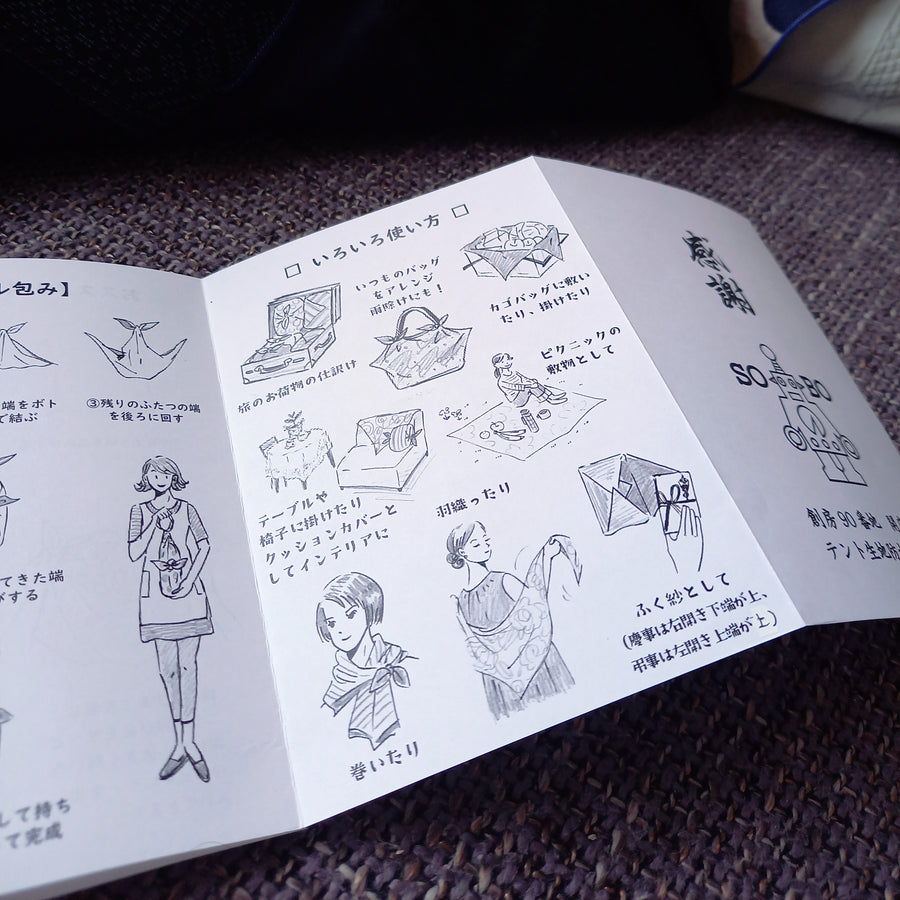 ル包み】
端をボト
で結ぶ
③残りのふたつの端
を後ろに回す
てきた端
がする
して持ち
て完成
□ いろいろ使い方 □
いつものバッグ
をアレンジ
雨除けにも！
カゴバッグに敷い
たり、掛けたり
旅のお荷物の仕訳け
ピクニックの
敷物として
テーブルや
椅子に掛けたり
クッションカバーと
してインテリアに
羽織ったり
巻いたり
ふく紗として
(慶事は右開き下端が上、
弔事は左開き上端が上)
感謝
SO BO
創房90番地
テント生地